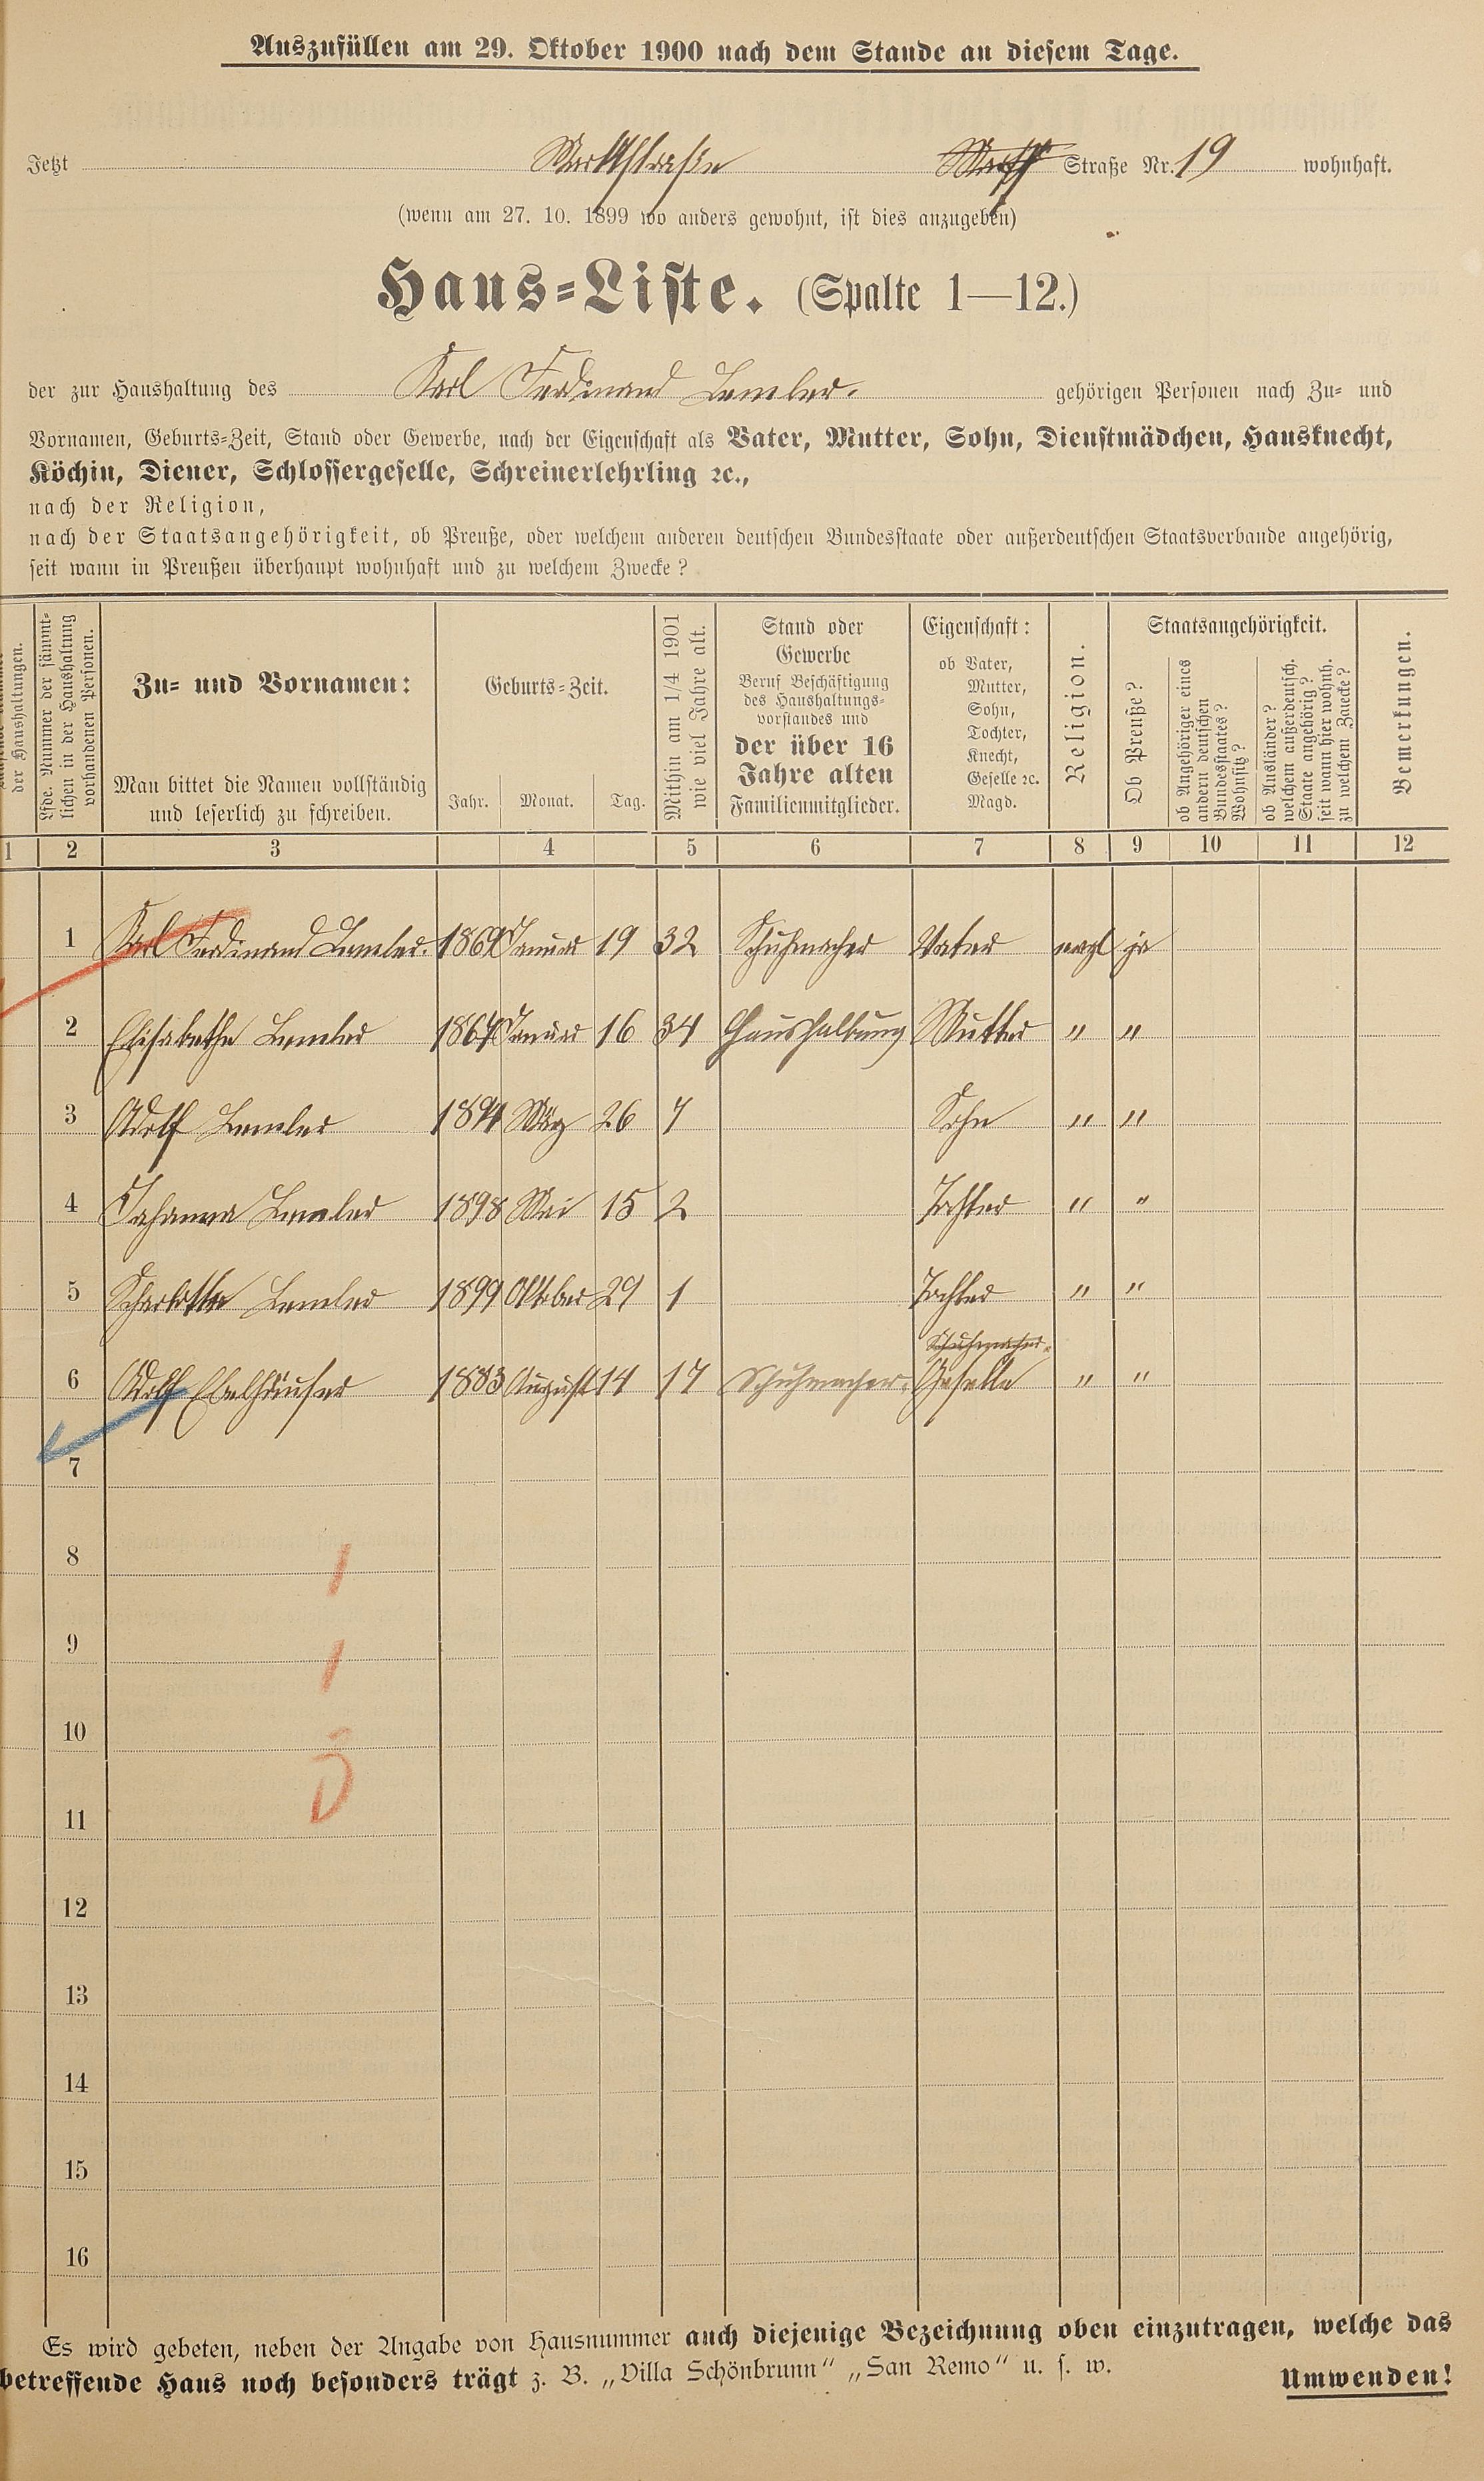 Auszufüllen am 29. Oktober 1900 nach dem Stande an diesem Tage.
Jetzt Marktstraße Straße Nr. 19 wohnhaft.
(wenn am 27. 10. 1899 wo anders gewohnt, ist dies anzugeben)
Haus-Liste. (Spalte 1—12.)
der zur Haushaltung des Karl Ferdinand Lemler. gehörigen Personen nach Zu- und
Vornamen, Geburts-Zeit, Stand oder Gewerbe, nach der Eigenschaft als Vater, Mutter, Sohn, Dienstmädchen, Hausknecht,
Köchin, Diener, Schlossergeselle, Schreinerlehrling ꝛc.,
nach der Religion,
nach der Staatsangehörigkeit, ob Preuße, oder welchem anderen deutschen Bundesstaate oder außerdeutschen Staatsverbande angehörig,
seit wann in Preußen überhaupt wohnhaft und zu welchem Zwecke?
der Haushaltungen.
Lfde. Nummer der sämmt-
lichen in der Haushaltung
vorhandenen Personen.
Zu- und Vornamen:
Man bittet die Namen vollständig
und leserlich zu schreiben.
Geburts-Zeit.
Jahr. Monat. Tag.
Mithin am 1/4 1901
wie viel Jahre alt.
Stand oder
Gewerbe
Beruf Beschäftigung
des Haushaltungs-
vorstandes und
der über 16
Jahre alten
Familienmitglieder.
Eigenschaft:
ob Vater,
Mutter,
Sohn,
Tochter,
Knecht,
Geselle ꝛc.
Magd.
Religion.
Staatsangehörigkeit.
Ob Preuße?
ob Angehöriger eines
andern deutschen
Bundesstaates?
Wohnsitz?
ob Ausländer?
welchem außerdeutsch.
Staate angehörig?
seit wann hier wohnh.
zu welchem Zwecke?
Bemerkungen.
1 2 3 4 5 6 7 8 9 10 11 12
1 Karl Ferdinand Lemler. 1869 Januar 19 32 Schuhmacher Vater evgl ja
2 Elisabethe Lemler Januar 16 34 Haushaltung Mutter " "
3 Adolf Lemler 1894 März 26 7 Sohn " "
4 Johanna Lemler 1898 Mai 15 2 Tochter " "
5 Scharlotte Lemler 1899 Oktober 29 1 Tochter " "
Schuhmacher-
6 Adolf Ebelhäuser 1883 August 14 17 Schuhmacher. Geselle " "
7
8
9
10
11
12
13
14
15
16
Es wird gebeten, neben der Angabe von Hausnummer auch diejenige Bezeichnung oben einzutragen, welche das
betreffende Haus noch besonders trägt z. B. „Villa Schönbrunn" „San Remo" u. s. w.
Umwenden!